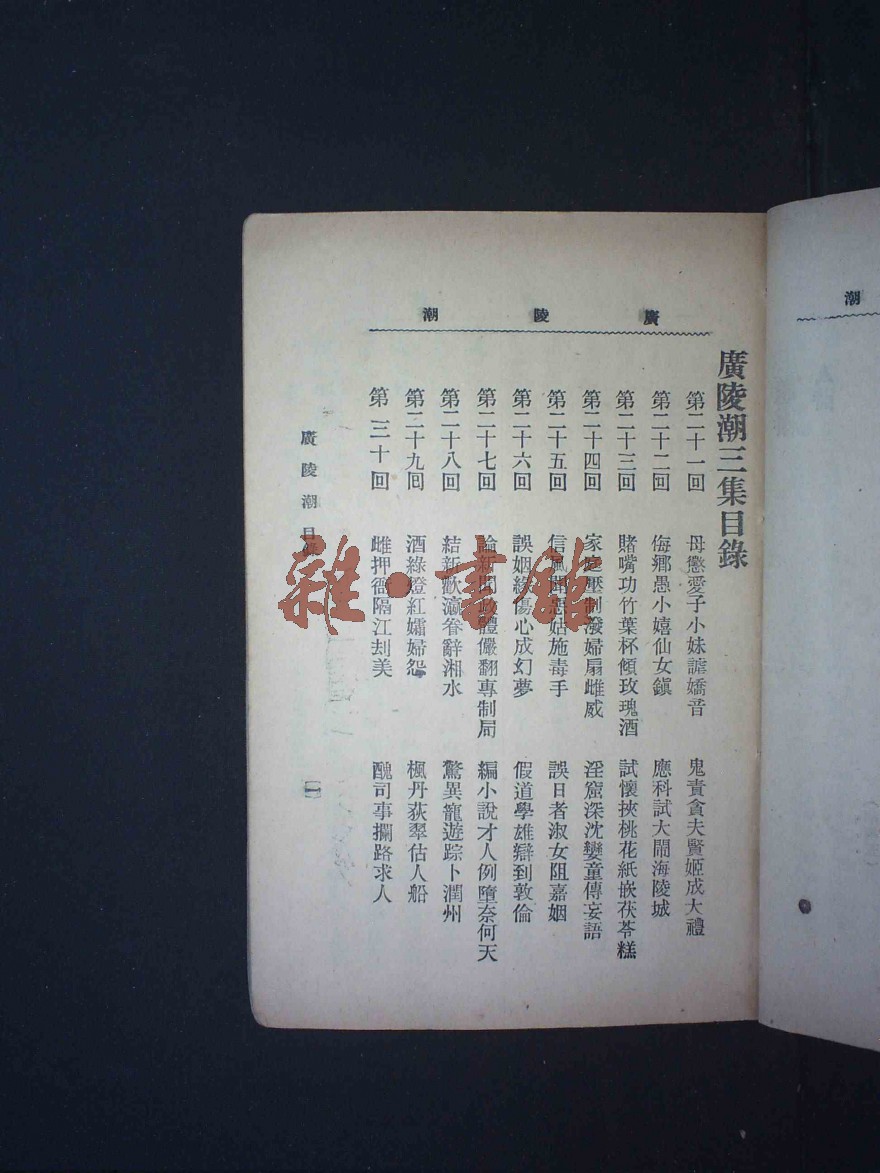 廣陵潮
廣陵潮三集目錄
第二十一回 母懲愛子小妹謔嬌音 鬼責貪夫賢姬成大禮
第二十二回 侮鄉愚小嬉仙女鎮 應科試大鬧海陵城
第二十三回 賭嘴功竹葉杯傾玫瑰酒 試懷挾桃花紙嵌茯苓糕
第二十四回 家庭壓制潑婦扇雌威 淫窟深沈孌童傳妄語
第二十五回 信風聞惡姑施毒手 誤日者淑女阻嘉姻
第二十六回 誤姻緣傷心成幻夢 假道學雄辯到敦倫
第二十七回 論新聞政體儼翻專制局 編小說才人例墮奈何天
第二十八回 結新歡瀛眷辭湘水 驚異寵遊踪卜潤州
第二十九回 酒綠燈紅孀婦怨 楓丹荻翠估人船
第三十回 雌押衙隔江刦美 醜司事攔路求人
廣陵潮目錄
一
潮
雜·書館